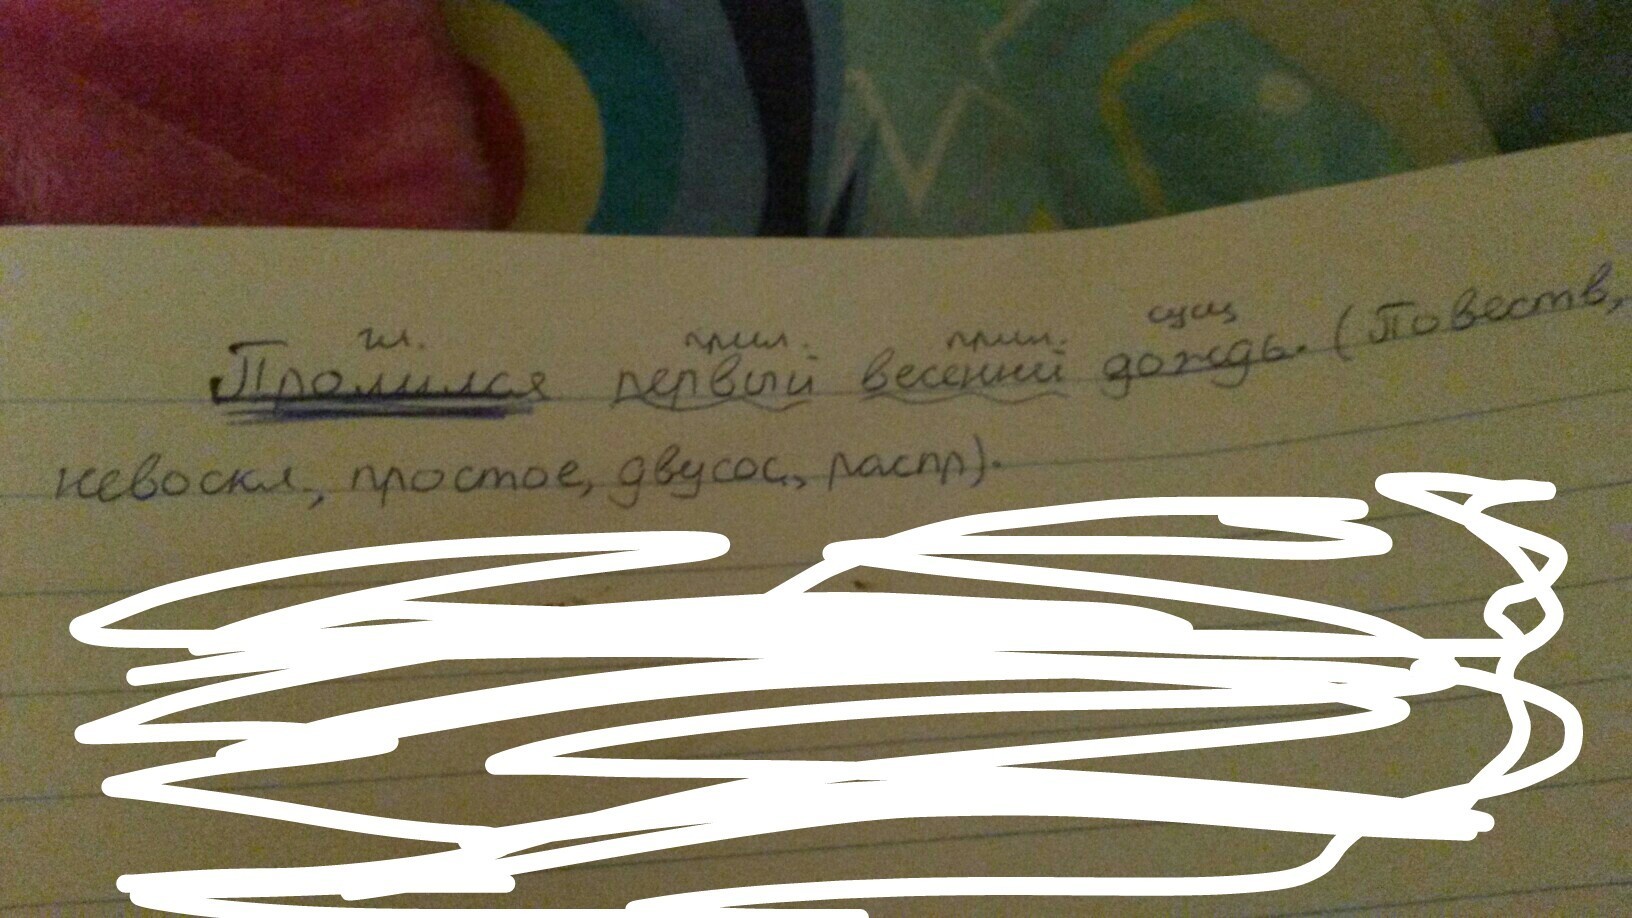 гл. прил. прил. сущ
Пролился первый весенний дождь. (Повеств,
невоскл., простое, двусос., распр).